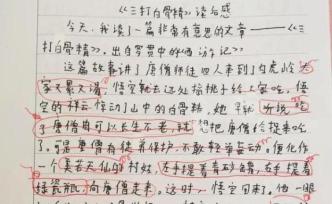 《三打白骨精》读后感
今天,我读了一篇非常有意思的文章——《三
打白骨精》,出自罗贯中的《西游记》
这篇故事讲了唐僧师徒四人来到了白虎岭,大
家又累又渴,悟空就去远处摘桃子给大家吃,悟
空的举云惊动了山中的白骨精,她早就听说吃
了唐僧肉可以长生不老,就想把唐僧给捉来吃
了。可是唐僧有徒弟保护,不敢轻举妄动。便化作
一个美若天仙的村姑,左手提着青砂罐,右手提着
绿瓷瓶,向唐僧走来。这时,悟空回来了。他一眼